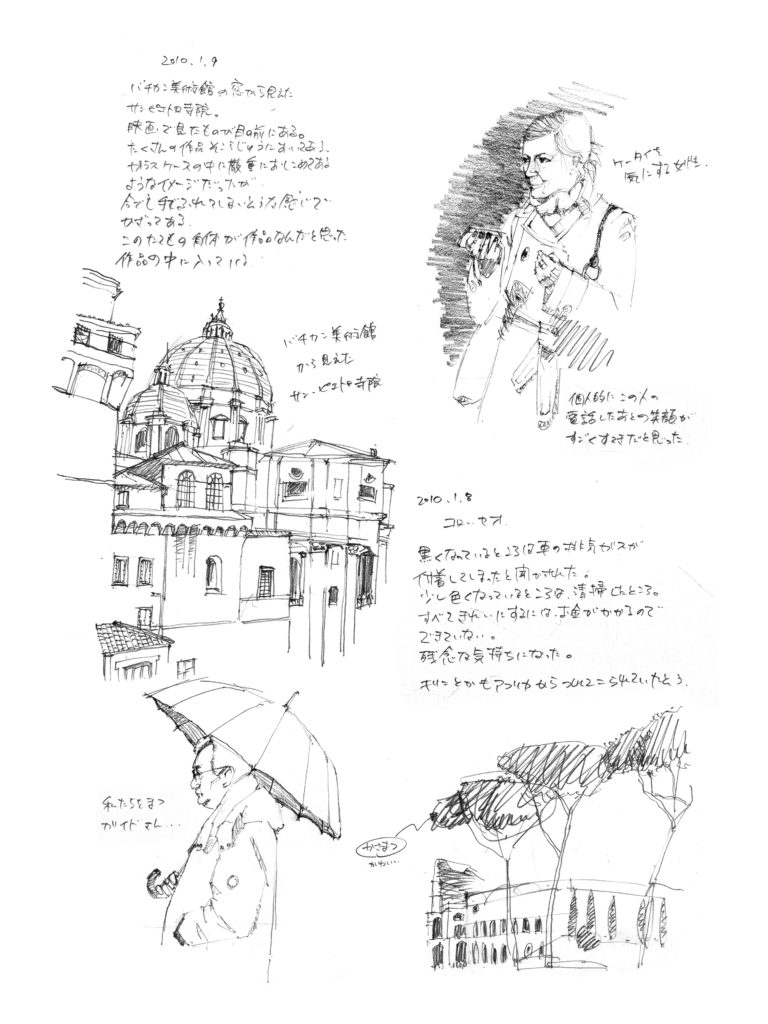 2010.1.9
バチカン美術館の窓から見えた
サンピエトロ寺院。
映画で見たものが目の前にある。
たくさんの作品
ガラスケースの中に厳重におしこめてある
ようなイメージだったが
今でも手でふれてしまいそうな感じで
かざってある
このたてもの自体が作品なんだと思った
作品の中に入っている
ケータイを
気にする女性.
バチカン美術館
から見えた
サン・ピエトロ寺院
個人的にこの人の
電話したあとの笑顔が
すごくすてきだと思った
2010.1.8
コロッセオ
黒くなっているところは車の排気ガスが
付着してしまったと聞かされた。
少し色くなっているところは、清掃したところ。
すべてきれいにするには、お金がかかるので
できていない。
残念な気持ちになった。
キリンとかもアフリカからつれてこられていたとう.
私たちをまつ
ガイドさん...
かさまつ
かわいい..